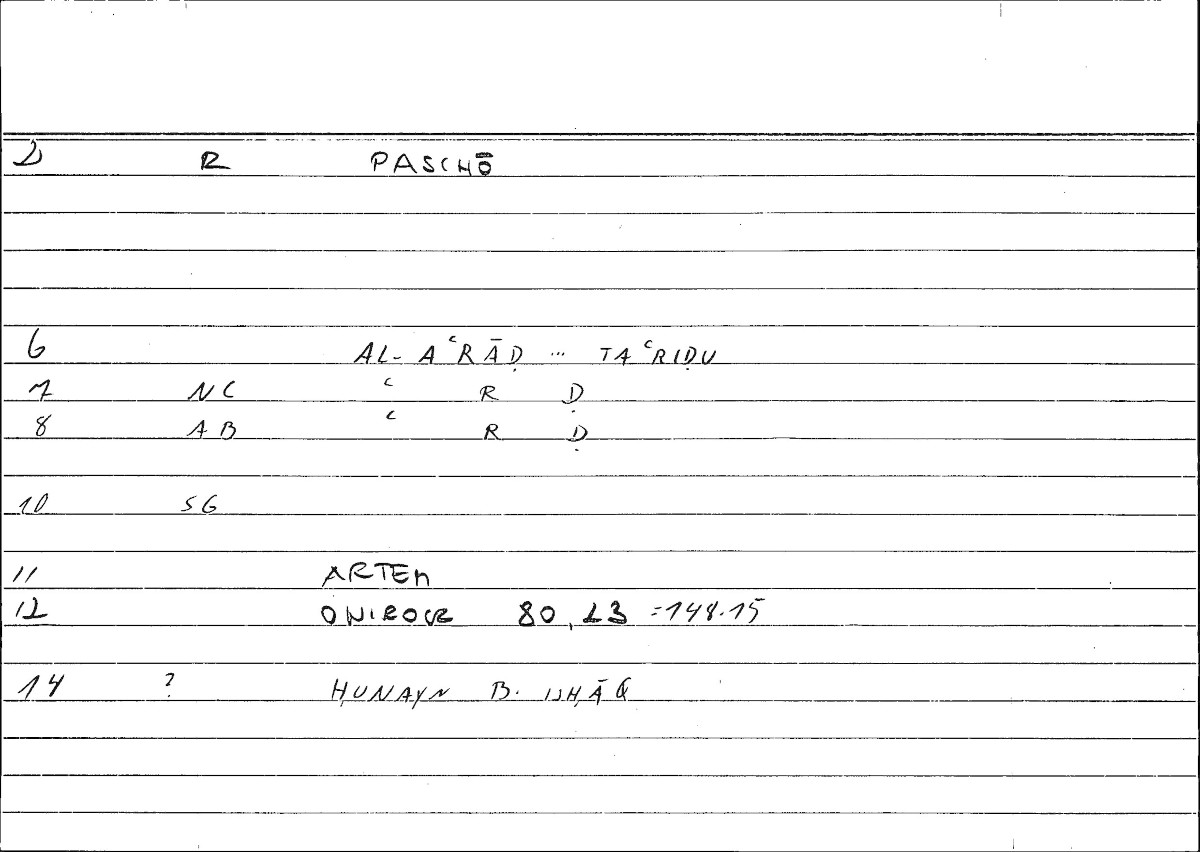 2 R PASCHŌ
6 AL- AʿRĀḌ ... TAʿRIḌU
7 NC ʿ R Ḍ
8 AB ʿ R Ḍ
10 SG
11 ARTEM
12 ONIROCR 80,23 =148.15
14 ? ḤUNAYN B. ISḤĀQ